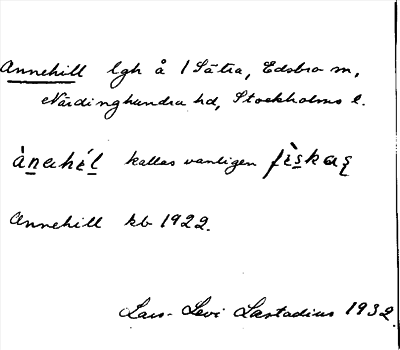 Annehill lgh å 1 Sätra, Edsbro sn,
Närdinghundra hd, Stockholms l.
ànahíl kallas vanligen fìskaṣ
Annehill kb 1922.
Lars-Levi Læstadius 1932.